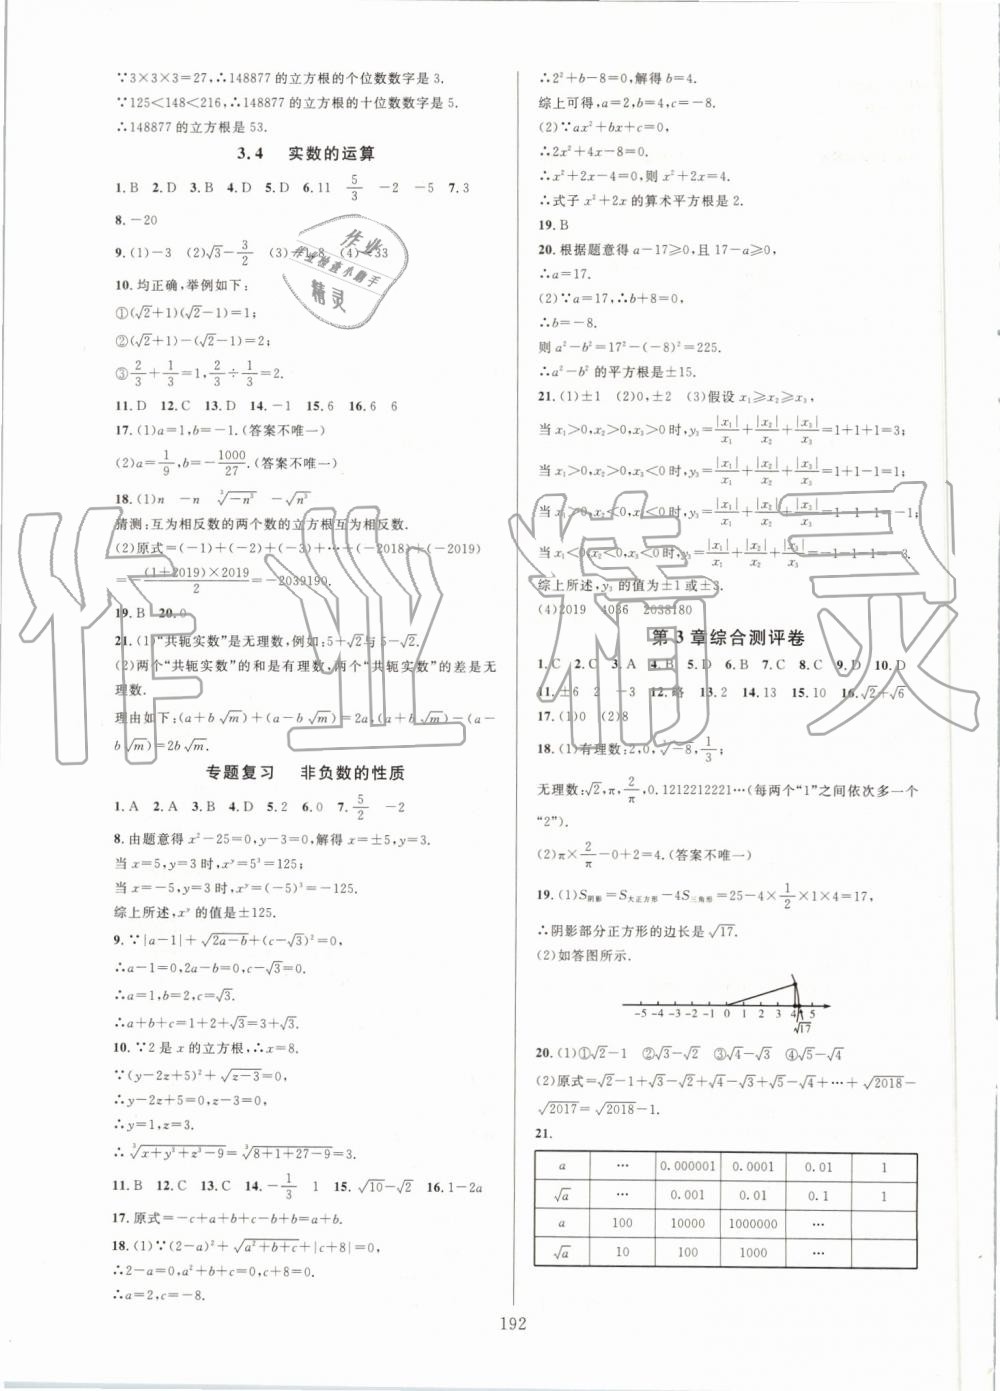 ∵3×3×3=27,∴148877的立方根的个位数数字是3.
∵125<148<216,∴148877的立方根的十位数数字是5.
∴148877的立方根是53.
3.4 实数的运算
1.B 2.D 3.B 4.D 5.D 6.11 5/3 -2 -5 7.3
8.-20
9.(1)-3 (2)√3-3/2 (3)
10.均正确,举例如下:
①(√2+1)(√2-1)=1;
②(√2+1)-(√2-1)=2;
③2/3+1/3=1,2/3÷1/3=2.
11.D 12.C 13.D 14.-1 15.6 16.6 6
17.(1)a=1,b=-1.(答案不唯一)
(2)a=1/9,b=-1000/27.(答案不唯一)
18.(1)n -n ∛(-n³) -√n³
猜测:互为相反数的两个数的立方根互为相反数.
(2)原式=(-1)+(-2)+(-3)+…+(-2018)+(-2019)
=-(1+2019)×2019/2=-2039190.
19.B 20.0
21.(1)“共轭实数”是无理数,例如:5+√2与5-√2.
(2)两个“共轭实数”的和是有理数,两个“共轭实数”的差是无
理数.
理由如下:(a+b√m)+(a-b√m)=2a,(a+b√m)-(a-
b√m)=2b√m.
专题复习 非负数的性质
1.A 2.A 3.B 4.D 5.2 6.0 7.5/2 -2
8.由题意得x²-25=0,y-3=0,解得x=±5,y=3.
当x=5,y=3时,xʸ=5³=125;
当x=-5,y=3时,xʸ=(-5)³=-125.
综上所述,xʸ的值是±125.
9.∵|a-1|+√(2a-b)+(c-√3)²=0,
∴a-1=0,2a-b=0,c-√3=0.
∴a=1,b=2,c=√3.
∴a+b+c=1+2+√3=3+√3.
10.∵2是x的立方根,∴x=8.
∵(y-2z+5)²+√(z-3)=0,
∴y-2z+5=0,z-3=0.
∴y=1,z=3.
∴∛(x+y³+z³-9)=∛(8+1+27-9)=3.
11.B 12.C 13.C 14.-1/3 1 15.√10-√2 16.1-2a
17.原式=-c+a+b+c-b+b=a+b.
18.(1)∵(2-a)²+√(a²+b+c)+|c+8|=0,
∴2-a=0,a²+b+c=0,c+8=0.
∴a=2,c=-8.
∴2²+b-8=0,解得b=4.
综上可得,a=2,b=4,c=-8.
(2)∵ax²+bx+c=0,
∴2x²+4x-8=0.
∴x²+2x-4=0,则x²+2x=4.
∴式子x²+2x的算术平方根是2.
19.B
20.根据题意得a-17≥0,且17-a≥0,
∴a=17.
(2)∵a=17,∴b+8=0,
∴b=-8.
则a²-b²=17²-(-8)²=225.
∴a²-b²的平方根是±15.
21.(1)±1 (2)0,±2 (3)假设x₁≥x₂≥x₃,
当x₁>0,x₂>0,x₃>0时,y₃=|x₁|/x₁+|x₂|/x₂+|x₃|/x₃=1+1+1=3;
当x₁>0,x₂>0,x₃<0时,y₃=|x₁|/x₁+|x₂|/x₂+|x₃|/x₃=1+1-1=1;
当x₁>0,x₂<0,x₃<0时,y₃=|x₁|/x₁+|x₂|/x₂+|x₃|/x₃=1-1-1=-1;
当x₁<0,x₂<0,x₃<0时,y₃=|x₁|/x₁+|x₂|/x₂+|x₃|/x₃=-1-1-1=-3.
综上所述,y₃的值为±1或±3.
(4)2019 4036 2038180
第3章综合测评卷
1.C 2.C 3.A 4.B 5.D 6.B 7.C 8.C 9.D 10.D
11.±6 2 -3 12.略 13.2 14.13 15.10 16.√2+√6
17.(1)0 (2)8
18.(1)有理数:2,0,∛-8,1/3;
无理数:√2,π,2/π,0.1212212221…(每两个“1”之间依次多一个
“2”).
(2)π×2/π-0+2=4.(答案不唯一)
19.(1)S阴影=S大正方形-4S三角形=25-4×1/2×1×4=17,
∴阴影部分正方形的边长是√17.
(2)如答图所示.
-5 -4 -3 -2 -1 0 1 2 3 4 5
√17
20.(1)①√2-1 ②√3-√2 ③√4-√3 ④√5-√4
(2)原式=√2-1+√3-√2+√4-√3+√5-√4+…+√2018-
√2017=√2018-1.
21.
a … 0.000001 0.0001 0.01 1
√a … 0.001 0.01 0.1 1
a 100 10000 1000000 …
√a 10 100 1000 …
192
作业
作业检查小助手
精灵
作业精灵